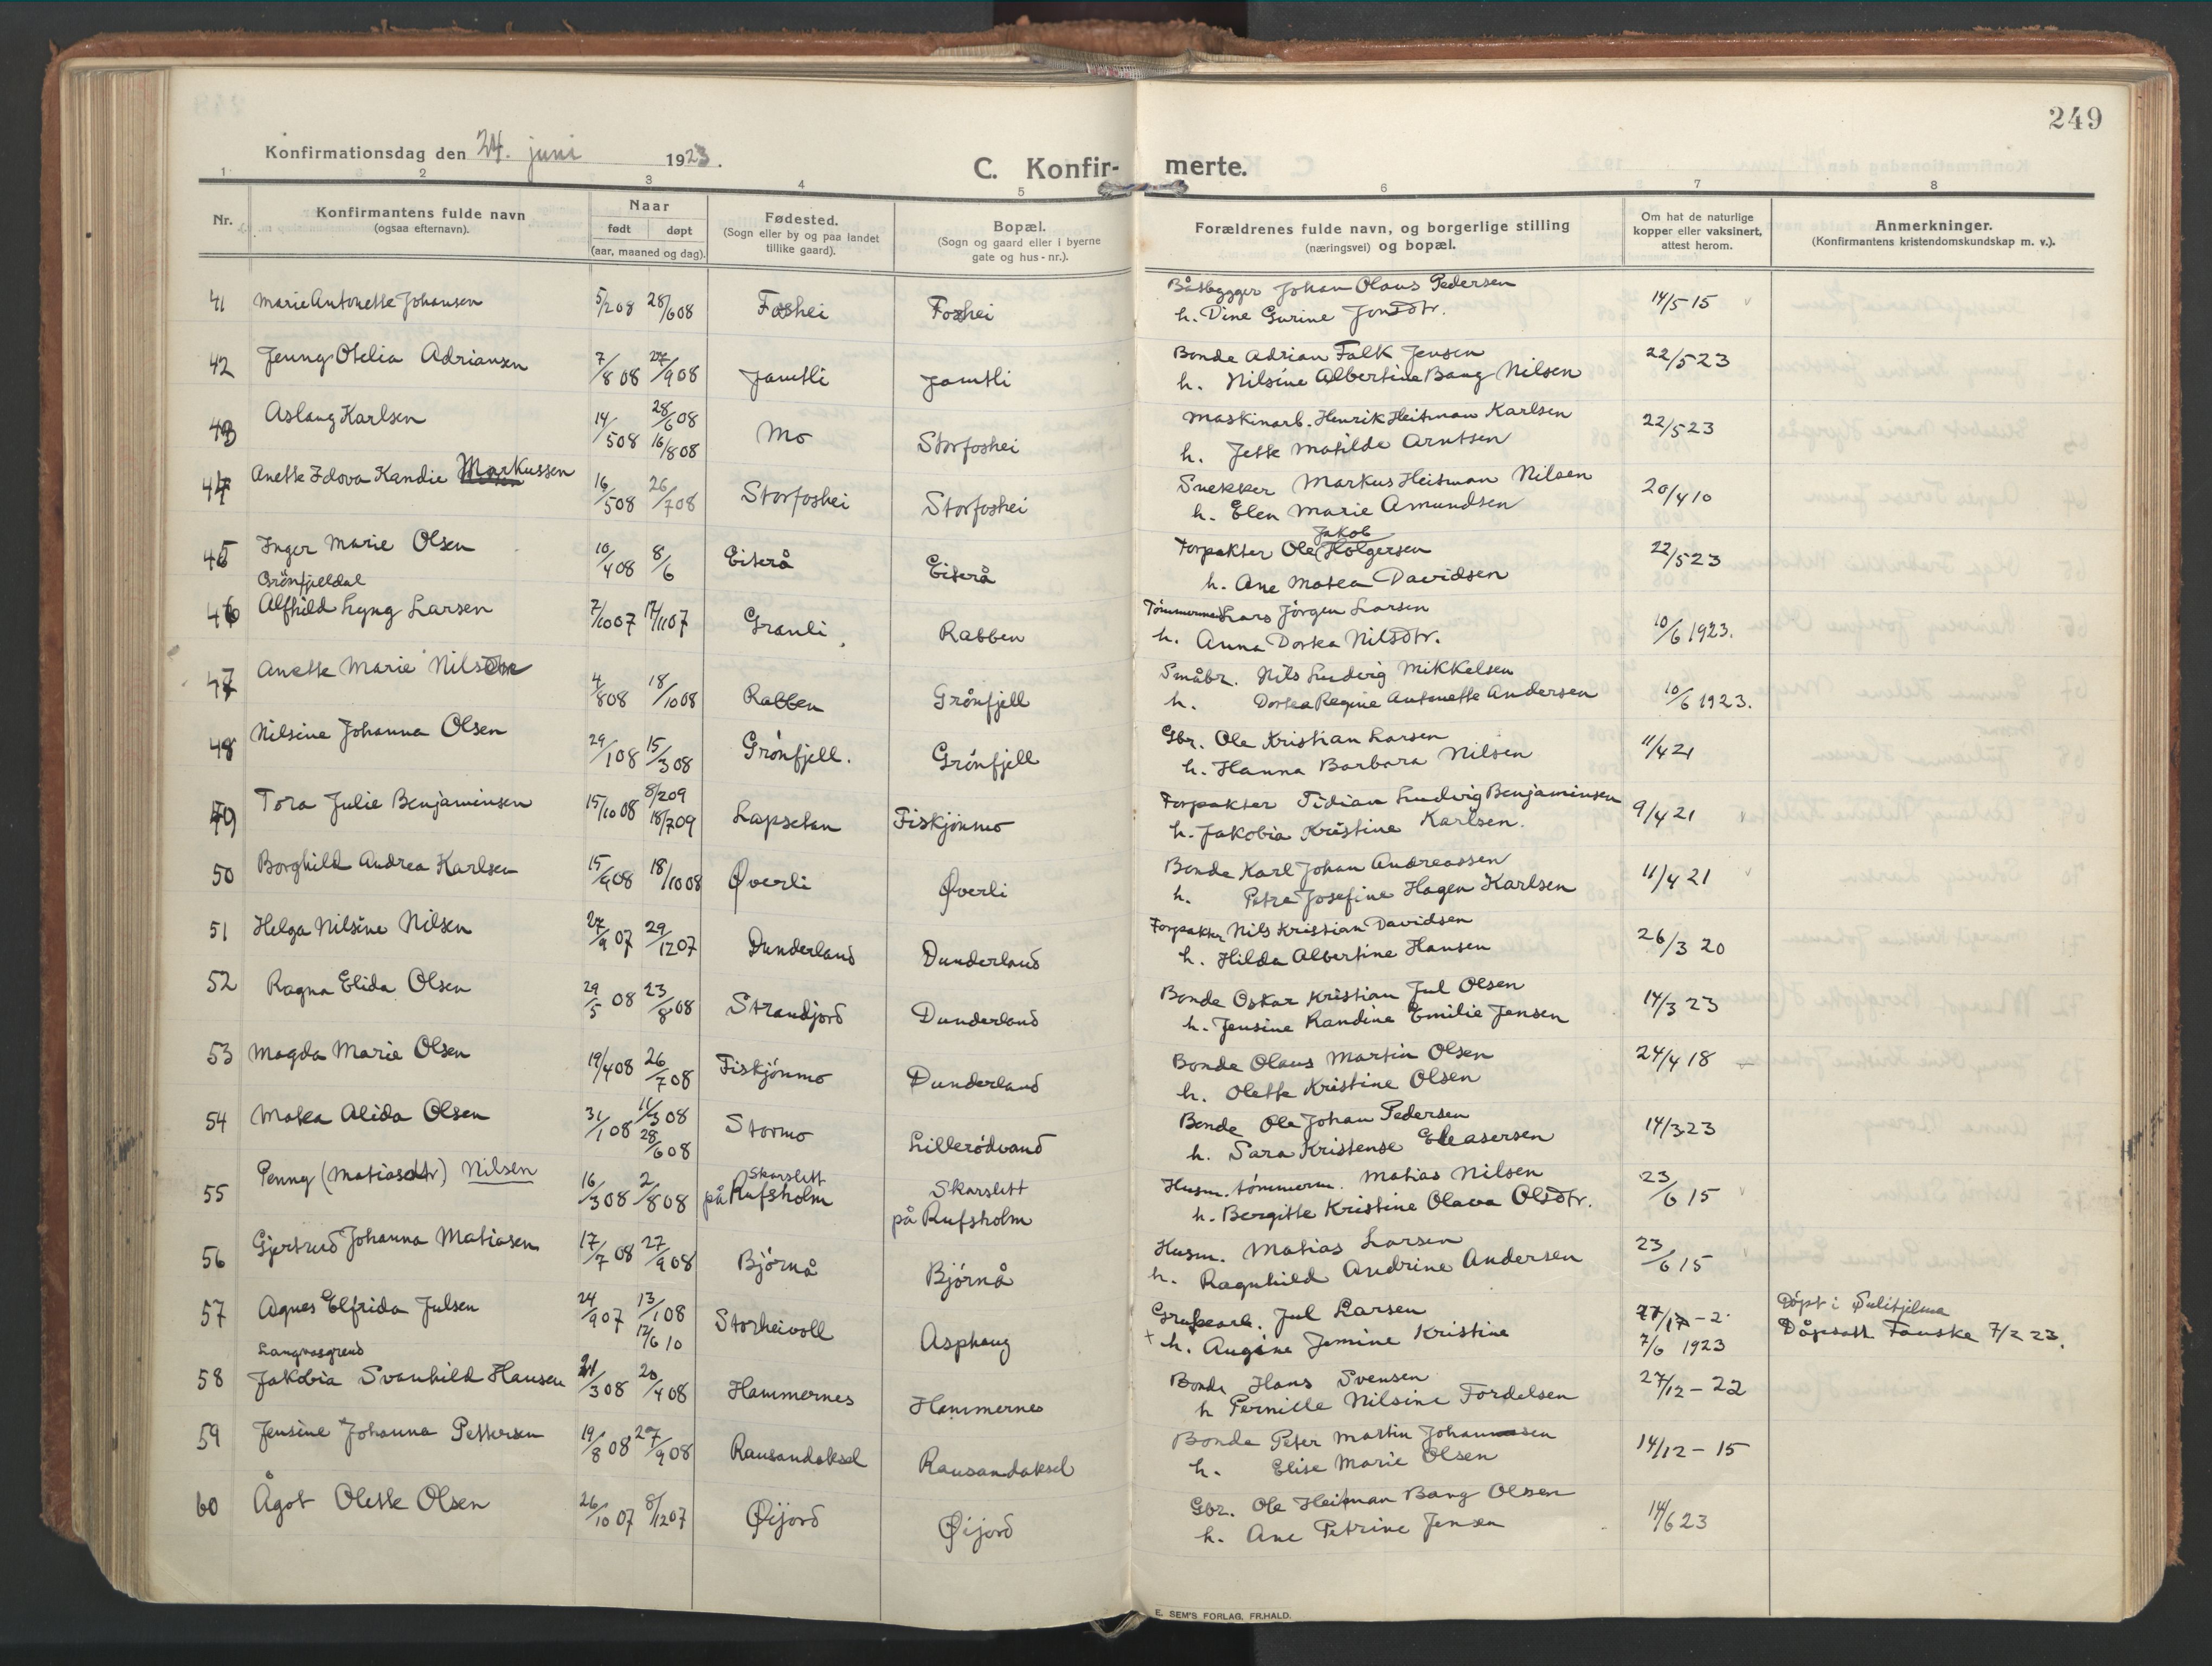 249
Konfirmationsdag den 24. juni 1923.
C. Konfirmerte.
1 2 3 4 5 6 7 8
Nr.
Konfirmantens fulde navn
(ogsaa efternavn).
Naar
født døpt
(aar, maaned og dag).
Fødested.
(Sogn eller by og paa landet
tillike gaard).
Bopæl.
(Sogn og gaard eller i byerne
gate og hus-nr.).
Forældrenes fulde navn, og borgerlige stilling
(næringsvei) og bopæl.
Om hat de naturlige
kopper eller vaksinert,
attest herom.
Anmerkninger.
(Konfirmantens kristendomskundskap m. v.).
41 Marie Antonette Johansen 5/2 08 28/6 08 Foshei Foshei Båtbygger Johan Olaus Pedersen 14/5 15
h. Dine Gurine Jonsdtr.
42 Jenny Otelia Adriansen 7/8 08 27/9 08 Jamtli Jamtli Bonde Adrian Falk Jensen 22/5 23
h. Nilsine Albertine Bang Nilsen
43 Aslaug Karlsen 14/5 08 28/6 08 Mo Storfoshei Maskinarb. Henrik Heitman Karlsen 22/5 23
16/8 08 h. Jette Matilde Arntsen
44 Anette Edova Kandie Markussen 16/5 08 26/7 08 Storfoshei Storfoshei Snekker Markus Heitman Nilsen 20/4 10
h. Elen Marie Amundsen
45 Inger Marie Olsen 10/4 08 8/6 Eiterå Eiterå Forpakter Ole Jakob Holgersen 22/5 23
h. Ane Matea Davidsen
Grönfjeldal
46 Alfhild Lyng Larsen 2/10 07 17/11 07 Granli Rabben Tömmermand Lars Jörgen Larsen 10/6 1923.
h. Anna Dortea Nilsdtr.
47 Anette Marie Nilsdtr 4/8 08 18/10 08 Rabben Grönfjell Småbr. Nils Ludvig Mikkelsen 10/6 1923.
h. Dortea Regine Antonette Andersen
48 Nilsine Johanna Olsen 29/1 08 15/3 08 Grönfjell. Grönfjell Gbr. Ole Kristian Larsen 11/4 21
h. Hanna Barbara Nilsen
49 Tora Julie Benjaminsen 15/10 08 8/2 09 Lapsetan Fiskjönmo Forpakter Tidian Ludvig Benjaminsen 9/4 21
18/7 09 h. Jakobia Kristine Karlsen.
50 Borghild Andrea Karlsen 15/9 08 18/10 08 Øverli Øverli Bonde Karl Johan Andreassen 11/4 21
h. Petra Josefine Hagen Karlsen
51 Helga Nilsine Nilsen 27/9 07 29/12 07 Dunderland Dunderland Forpakter Nils Kristian Davidsen 26/3 20
h. Hilda Albertine Hansen
52 Ragna Elida Olsen 29/5 08 23/8 08 Strandjord Dunderland Bonde Oskar Kristian Jul Olsen 14/3 23
h. Jensine Randine Emilie Jensen
53 Magda Marie Olsen 19/4 08 26/7 08 Fiskjönmo Dunderland Bonde Olaus Martin Olsen 24/4 18
h. Olette Kristine Olsen
54 Matea Alida Olsen 31/1 08 11/3 08 Stormo Lillerödvand Bonde Ole Johan Pedersen 14/3 23
28/6 08 h. Sara Kristense Eleasersen
55 Penny (Matiasdtr) Nilsen 16/3 08 2/8 08 Skarslett på Rufsholm Skarslett på Rufsholm Husm. tömmerm. Matias Nilsen 23/6 15
h. Bergitte Kristine Olava Olsdtr.
56 Gjertrud Johanna Matiasen 17/7 08 27/9 08 Björnå Björnå Husm. Matias Larsen 23/6 15
h. Ragnhild Andrine Andersen
57 Agnes Elfrida Julsen 24/9 07 13/1 08 Storheivoll Asphaug Grubearb. Jul Larsen Döpt i Sulitjelma
12/6 10 + h. Augine Jemine Kristine 7/6 1923 Dåpsatt. Fauske 7/2 23.
Langvasgrend
58 Jakobia Svanhild Hansen 21/3 08 20/4 08 Hammernes Hammernes Bonde Hans Svensen 27/12 - 22
h Pernille Nilsine Fordelsen
59 Jensine Johanna Pettersen 19/8 08 27/9 08 Rausandaksel Rausandaksel Bonde Peter Martin Johannesen 14/12 - 15
h. Elise Marie Olsen
60 Ågot Olette Olsen 26/10 07 8/12 07 Øijord Øijord Gbr. Ole Heitman Bang Olsen 14/6 23
h. Ane Petrine Jensen
E. SEM'S FORLAG, FR.HALD.